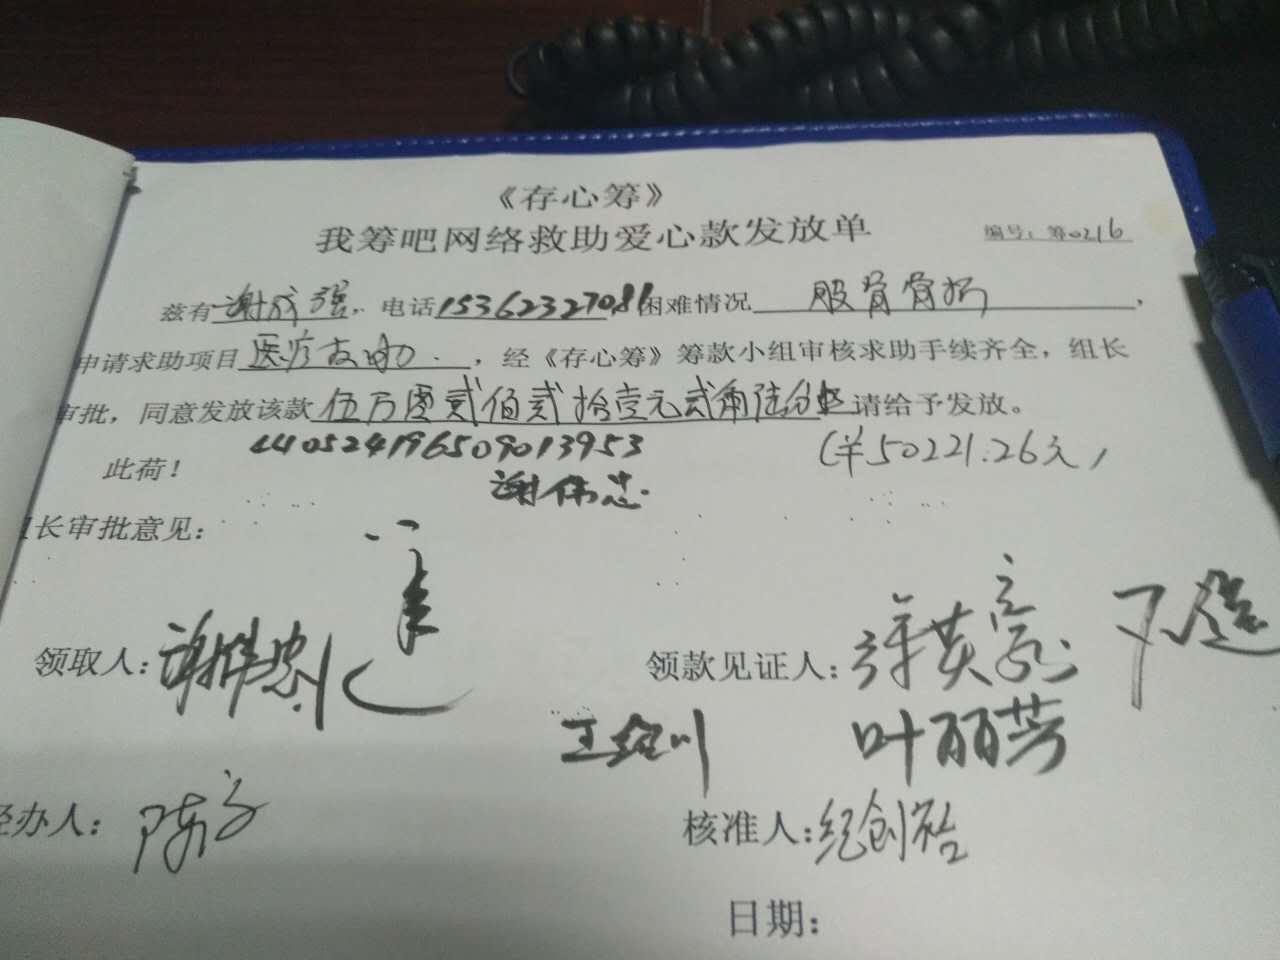 《存心筹》
我筹吧网络救助爱心款发放单
编号：筹0216
兹有谢成强，电话15362327081困难情况 股骨骨折，
申请求助项目医疗救助，经《存心筹》筹款小组审核求助手续齐全，组长
审批，同意发放该款伍万零贰佰贰拾壹元贰角陆分整请给予发放。
440524196509013953 （￥50221.26元）
此荷！
谢伟忠
组长审批意见：
领取人：谢伟忠 领款见证人：许英豪
王绍川 叶丽芳
经办人：陈 核准人：纪创裕
日期：